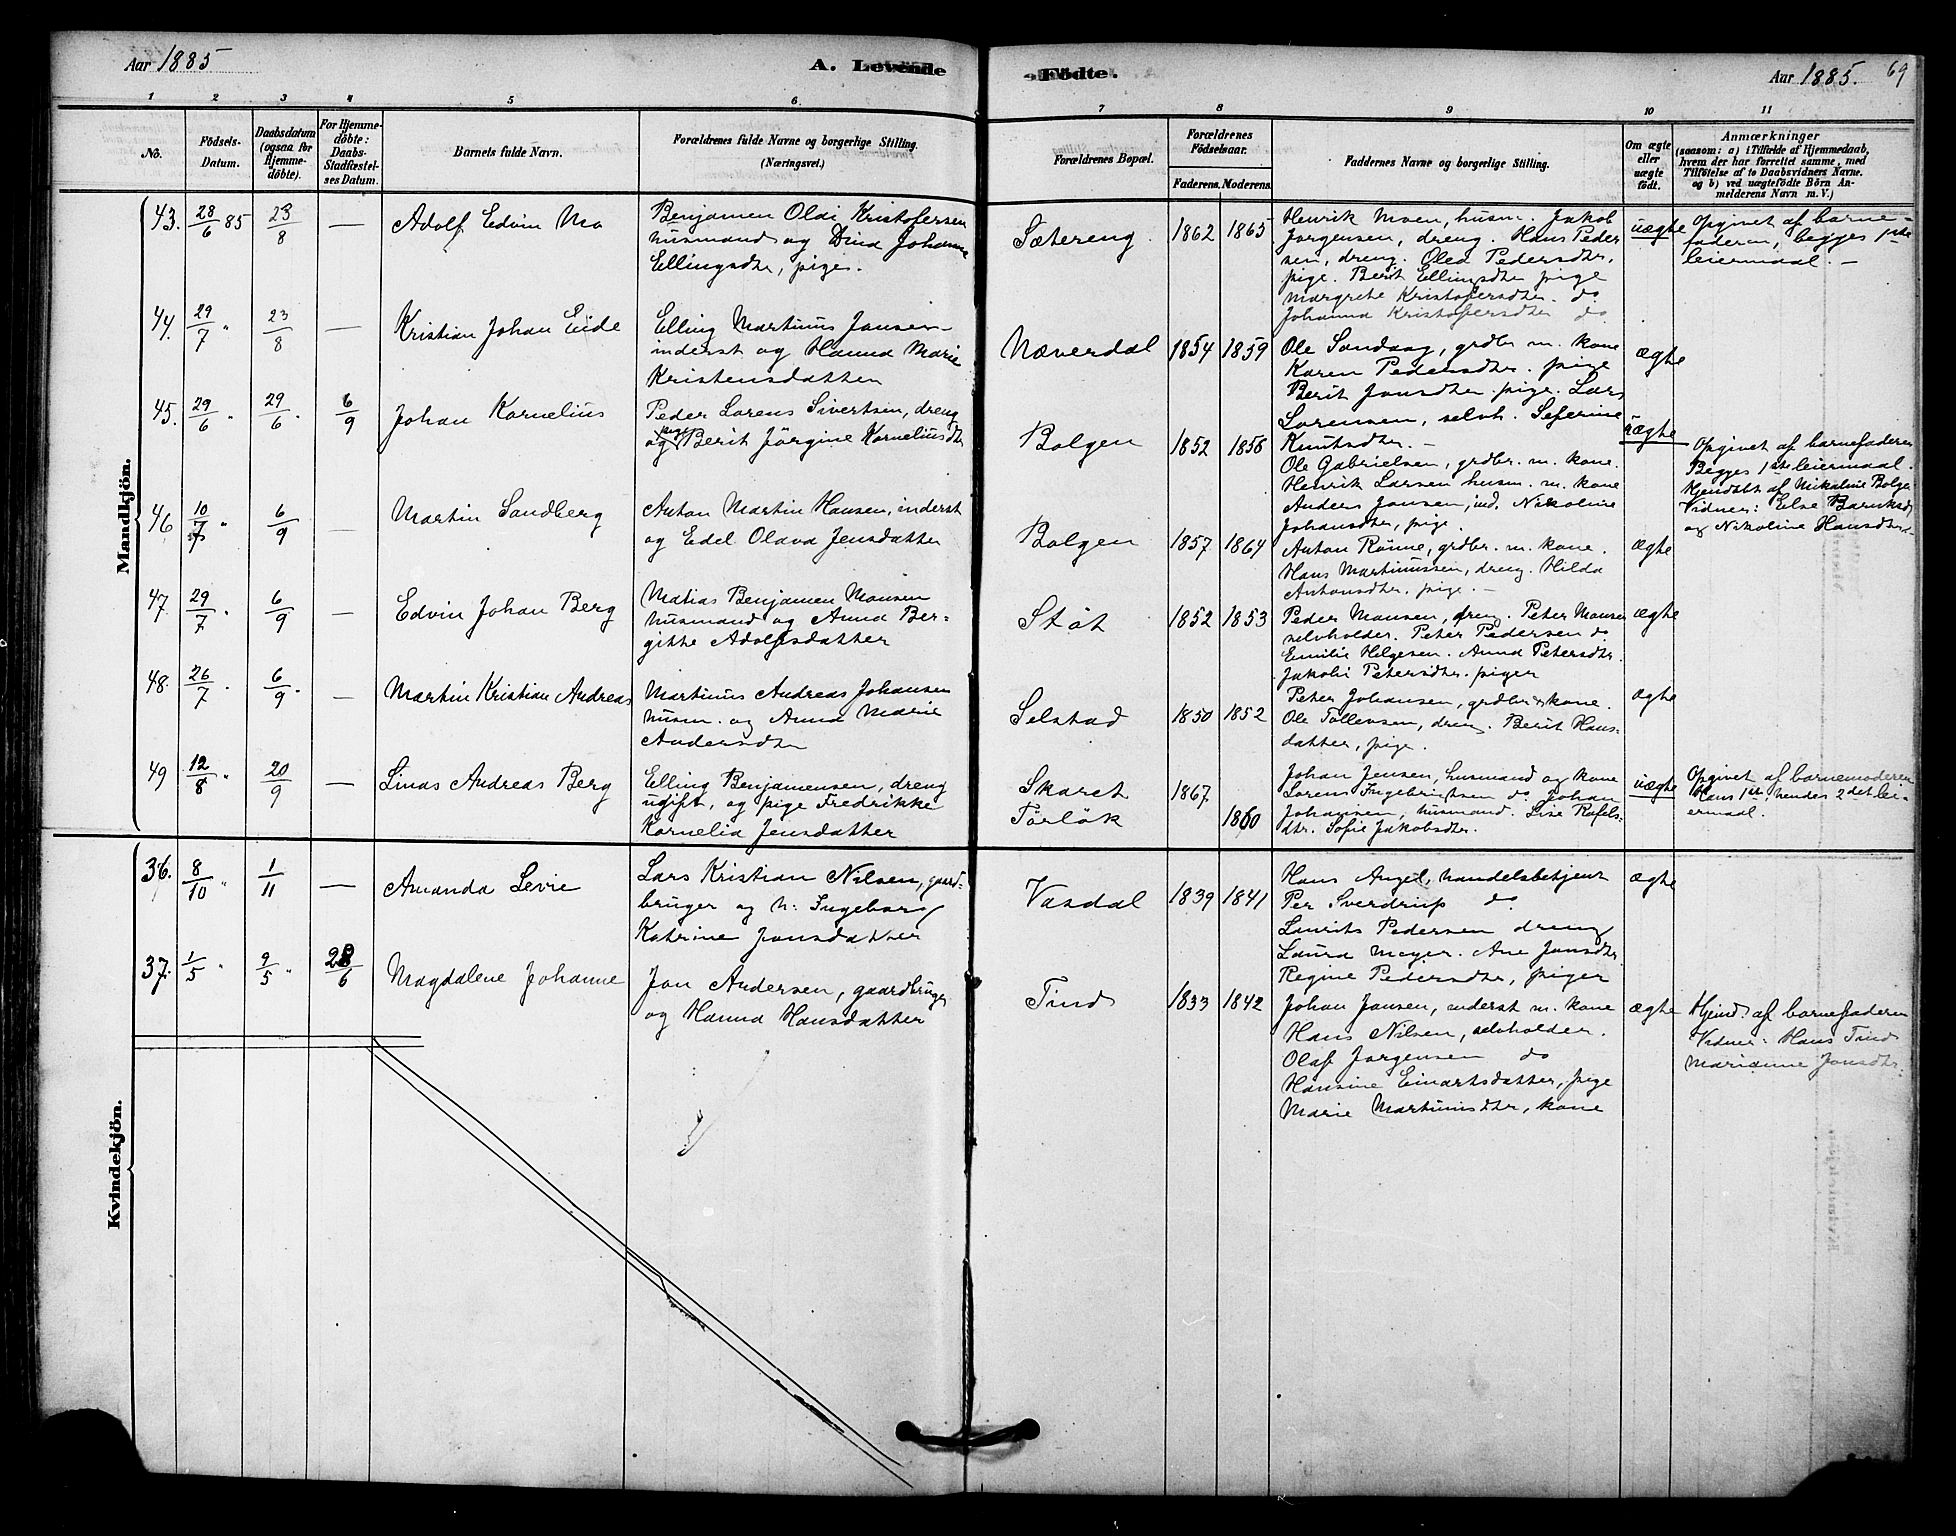 Aar 1885
A. Levende
Födte.
Aar 1885.
69
1 2 3 4 5 6. 7 8 9 10 11
No.
Födsels-
Datum.
Daabsdatum
(ogsaa for
Hjemme-
döbte).
For Hjemme-
döbte:
Daabs-
Stadfæstel-
ses Datum.
Barnets fulde Navn.
Forældrenes fulde Navne og borgerlige Stilling.
(Næringsvei.)
Forældrenes Bopæl.
Forældrenes
Födselsaar.
Faderens. Moderens.
Faddernes Navne og borgerlige Stilling.
Om ægte
eller
uægte
födt.
Anmærkninger
(saasom: a) i Tilfælde af Hjemmedaab,
hvem der har forrettet samme, med
Tilföielse af to Daabsvidners Navne.
og b) ved uægtefödte Börn An-
melderens Navn m. V.)
Mandkjön.
43. 28/6 85 23/8 — Adolf Edvin Mo
Benjamen Oldi Kristofersen
husmand og Dina Johanne
Ellingsdtr, pige.
Sætereng. 1862 1865
Henrik Moen, husm. Jakob
Jorgensen, dreng. Hans Peder
sen, dreng. Olea Pedersdtr,
pige. Berit Ellingsdtr pige
Margrete Kristofersdtr. do
Johanna Kristofersdtr do
uægte
Opgivet af barne-
faderen, begges 1ste
leiermaal. —
44. 29/7 " 23/8 — Kristian Johan Eide
Elling Martinus Jansen
inderst og Hanna Marie
Kristensdatter
Næverdal 1854 1859
Ole Sandaag, grdbr m. kone
Karen Pedersdtr. pige
Berit Jonsdtr. pige. Lars
Lorensen, selvh. Seferine
Knutsdtr. —
ægte
45. 29/6 " 29/6 " 6/9 Johan Kornelius
Peder Lorens Sivertsen, dreng
og pige Berit Jörgine Korneliusdtr
Bolgen 1852 1858
Ole Gabrielsen, grdbr. m. kone.
Henrik Larsen husm. m. kone
Anders Jansen, ind. Nikoline
Johansdtr, pige.
uægte
Opgivet af barnefaderen
Begges 1ste leiermaal.
Hjemdøbt af Nikoline Bolge
Vidner: Else
og Nikoline Hansdtr
46 10/7 " 6/9 — Martin Sandberg
Anton Martin Hansen, inderst
og Edel Olava Jensdatter
Bolgen 1857 1864
Anton Rönne, grdbr. m. kone.
Hans Martinussen, dreng. Hilda
Antonsdtr. pige. —
ægte
47. 29/7 " 6/9 — Edvin Johan Berg
Matias Benjamen Monsen
husmand og Anna Ber-
gitte Adolfsdatter
Stöt 1852 1853
Peder Monsen, dreng. Peter Monsen
selvholder. Peter Pedersen do
Emilie Helgesen. Anna Petersdtr.
Jakobi Petersdtr. piger
ægte
48. 26/7 " 6/9 " — Martin Kristian Andreas
Martinus Andreas Johansen
husm. og Anna Marie
Andersdtr
Selstad 1850 1852
Peter Johansen, grdbr & kone.
Ole Tollevsen, dreng. Berit Hans-
datter, pige.
ægte
49 12/8 " 20/9 — Linas Andreas Berg
Elling Benjamensen, dreng
ugift, og pige Fredrikke
Kornelia Jensdatter
Skaret 1867
Förlök 1860
Johan Jensen, husmand og kone
Lorens Ingebrigtsen do Johan
Johansen, husmand. Lise Rafels-
dtr. Sofie Jakobsdtr.
uægte
Opgivet af barnemoderen
Hans 1ste, hendes 2det lei-
ermaal.
Kvindekjön.
36. 8/10 " 1/11 — Amanda Levie
Lars Kristian Nilsen, gaard-
bruger og h: Ingeborg
Katrine Jonsdatter
Vasdal 1839 1841
Hans Angel, handelsbetjent
Per Sverdrup do
Laurits Pedersen dreng
Laura Meyer. Ane Jonsdtr
Regine Pedersdtr, piger
ægte
37. 1/5 " 9/5 " 28/6 Magdalene Johanne
Jon Andersen, gaardbruger
og Hanna Hansdatter
Tind 1833 1842
Johan Jansen, inderst m. kone
Hans Nilsen, selvholder.
Olaf Jorgensen do
Hansine Einartsdatter, pige
Marie Martinusdtr, kone
ægte
Hjemd. af barnefaderen
Vidner: Hans Tind
Marianne Jonsdtr.